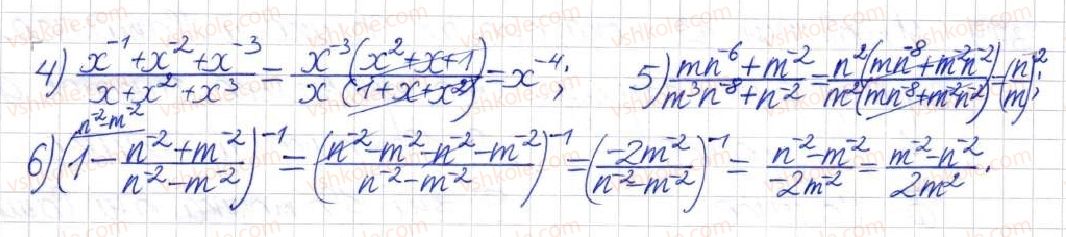 4) (x⁻¹+x⁻²+x⁻³)/(x+x²+x³) = (x⁻³(x²+x+1))/(x(1+x+x²)) = x⁻⁴; 5) (mn⁻⁶+m⁻²)/(m³n⁻⁸+n⁻²) = (n²(mn⁻⁸+m⁻²n⁻²))/(m²(mn⁻⁸+m⁻²n⁻²)) = (n/m)²;
n⁻²-m⁻²
6) (1 - (n⁻²+m⁻²)/(n⁻²-m⁻²))⁻¹ = ((n⁻²-m⁻²-n⁻²-m⁻²)/(n⁻²-m⁻²))⁻¹ = ((-2m⁻²)/(n⁻²-m⁻²))⁻¹ = (n⁻²-m⁻²)/(-2m⁻²) = (m⁻²-n⁻²)/(2m²).